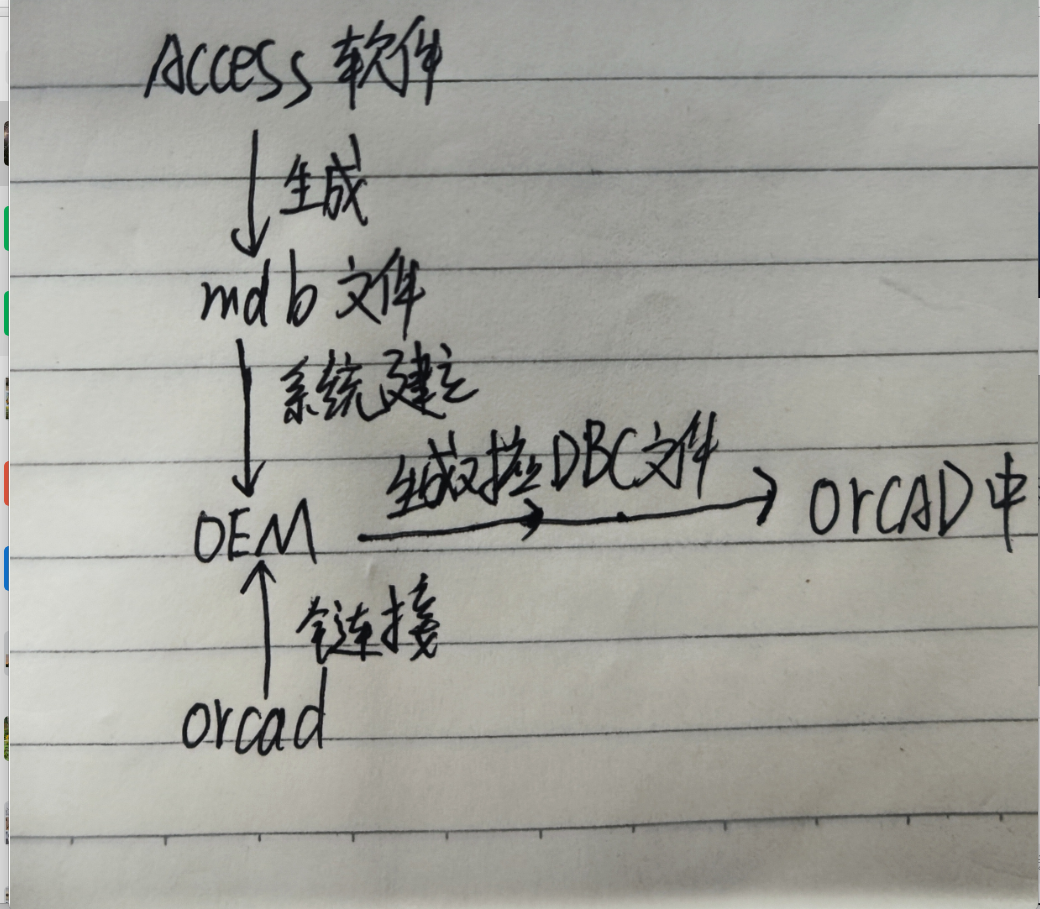 Access 软件
生成
mdb 文件
系统建立
生成 DBC文件
OEM
OrCAD中
连接
orcad